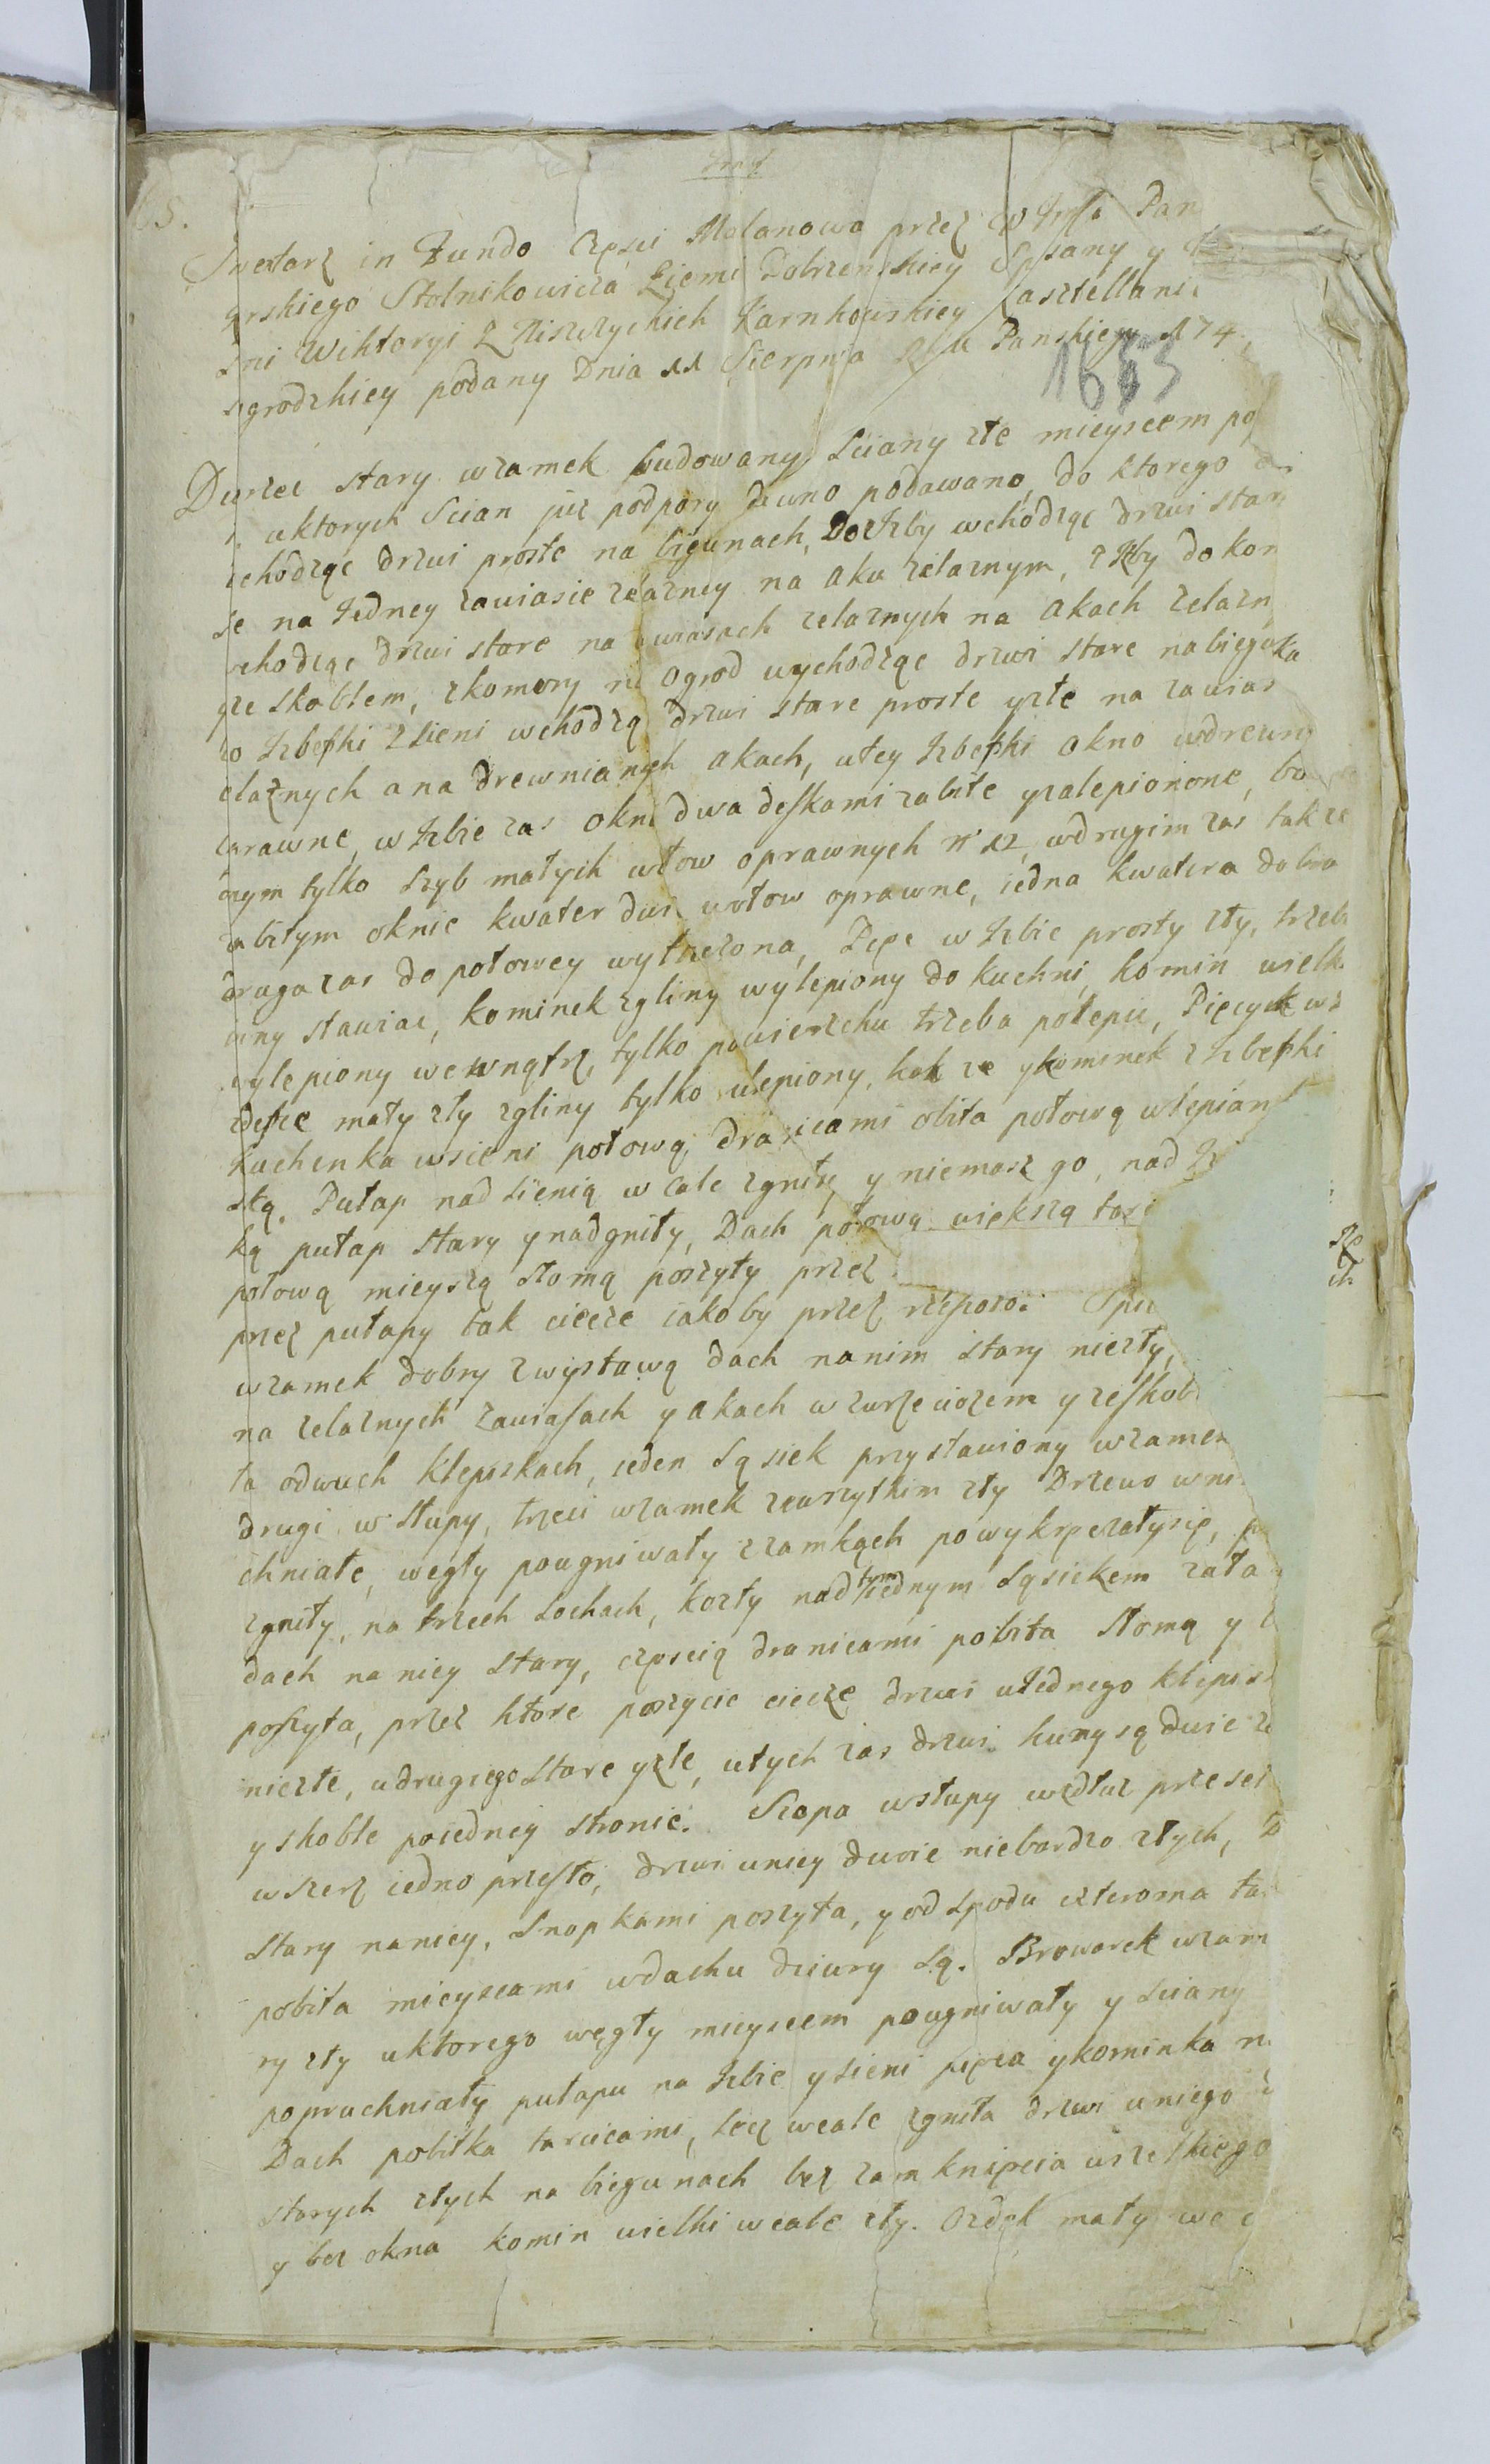 Inwetarz in Fundo Części Malanowa przez
gurskiego Stolnikowicza Ziemi Dobrzenskiey Spisany y
Wiktoryi z Niszczyckich Karnkowskiey Kasztellani
sgrodzkiey podany Dnia 11 Sierpnia Panskiego 174
1653
Dworzec stary wzamek budowany Sciany złe mieyscem
uktorych Scian już podpory dawno podawano, do ktorego
chodząc drzwi proste na bigunach, Do Izby wchodząc drzwi star
se na Iedney zawiasie zelazney na aku zelaznym, z Izby do kom
chodząc drzwi stare na awiasach zelaznych na akach zelazn
ze skoblem, zkomory na ogrod wychodząc drzwi stare na biguka
do Izbeszki z sieni wchodzą drzwi stare proste yzłe na zawias
elaznych ana drewnianych akach, utey Izbeszki okno wdrewn
oprawne, w Izbie zas okna dwa deskami zabite yzalepionone,
nym tylko szyb małych wołow oprawnych nr 12, wdrugim zas także
zabitym oknie kwater dwi wołow oprawne, iedna kwatera dobra
druga zas do połowey wytłuczona, Piec w Izbie prosty zły, trzeba
inny stawiac, kominek zgliny wylepiony do kuchni, komin wielk
wylepiony wewnątrz, tylko powierzchu trzeba polepic, Piecyk wz
beszce mały zły zgliny tylko ulepiony, kak ze ykominek z Izbeszki
Kuchenka wsieni połową dranicami obita połową wlepian
ską. Pułap nad sienią w cale zgniły y niemasz go, nad
ką pułap stary ynadgniły, Dach połową większą
połową mieyszą słomą poszyty przez
przez pułapy tak ciecze iakoby przez rzeszoto.
wzamek dobry zwystawą dach nanim stary niezły,
na zelaznych zawiasach y akach wzurzeciozem y zeskob
ta odwuch klepiskach, ieden sąsiek przystawiony wzamek
drugi w słupy, trzeci wzamek zewszytkim zły Drzewo wni
chniałe, węgły pougniwały zzamkach powykręczałysię,
zgniły, na trzech sochach, kozły nad tym iednym sąsiekem zała
dach naniey stary, częscią dranicami pobita słomą y
poszyta, przez ktore poszycie ciecze drzwi uIednego klepis
niezłe, udrugiego stare yzłe, utych zas drzwi kuny są dwie
y skoble poiedney stronie. Szopa wsłupy wzdłuz przeseł
wszerz iedno przesło, drzwi uniey dwoie niebardzo złych,
stary naniey, snopkami poszyta, y od spodu czteroma
pobita mieyscami wdachu dziury są. Browarek wzam
ry zły uktorego węgły mieyscem pougniwały y sciany
popruchniały pułapu na Izbie ysieni pieca ykominka
Dach pobitka tarcicami, lecz wcale zgniła drzwi uniego
starych złych na biegunach bez zamknięcia wszelkiego
y bez okna komin wielki wcale zły. Ozdek mały we